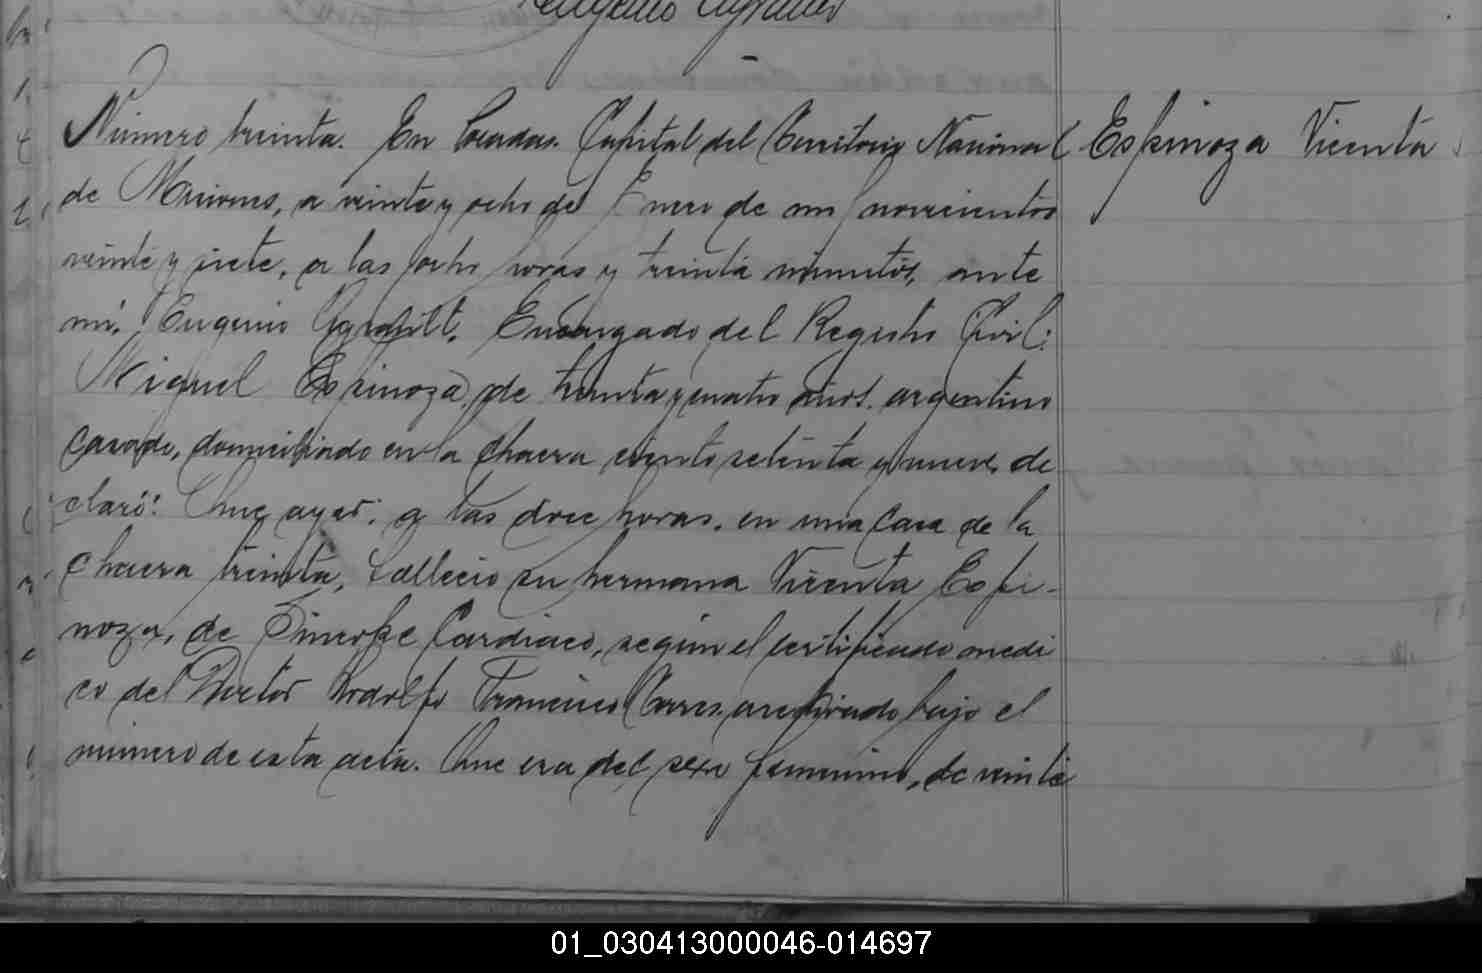 Número treinta. En Posadas. Capital del Territorio Nacional
Espinoza Vicenta
de Misiones, a veinte y ocho de Enero de mil novecientos
veinte y siete, a las ocho horas y treinta minutos, ante
mi, Eugenio Encargado del Registro Civil:
Miguel Espinoza, de treinta y cuatro años, argentino
casado, domiciliado en la chacra ciento setenta y nueve, de
claró: Que ayer, a las doce horas, en una casa de la
chacra treinta, falleció su hermana Vicenta Espi-
noza, de Sincope Cardiaco, según el certificado medi
co del Doctor Rodolfo Francisco Torres, archivado bajo el
número de esta acta. Que era del sexo femenino, de veinte
01_030413000046-014697